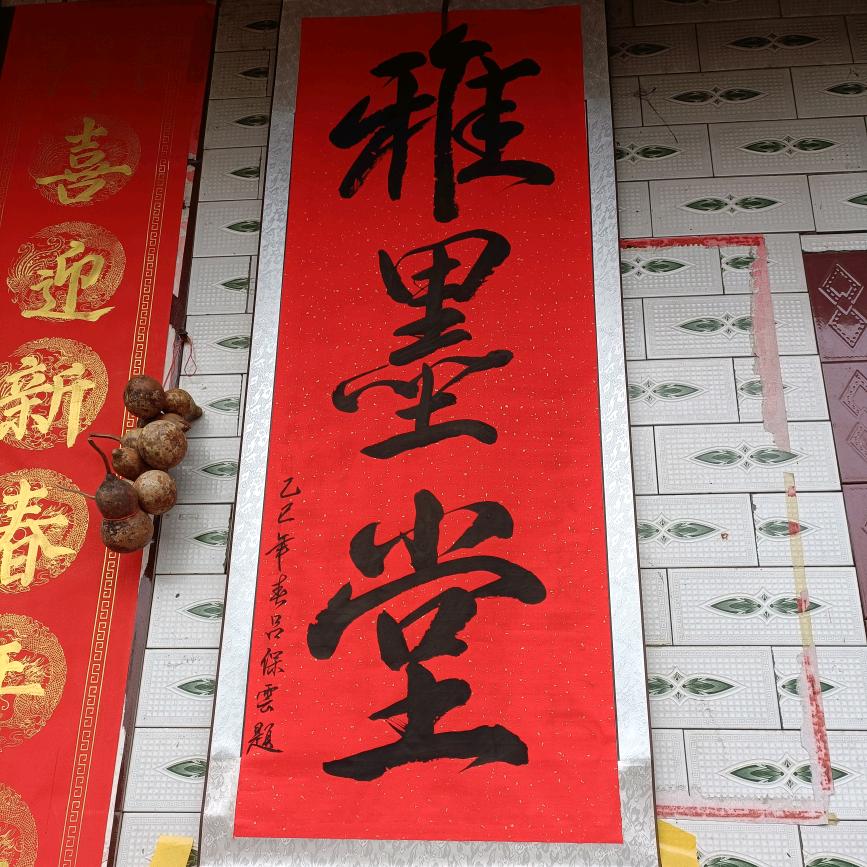 雅墨堂
乙巳年春吕保雲題
喜迎新春年